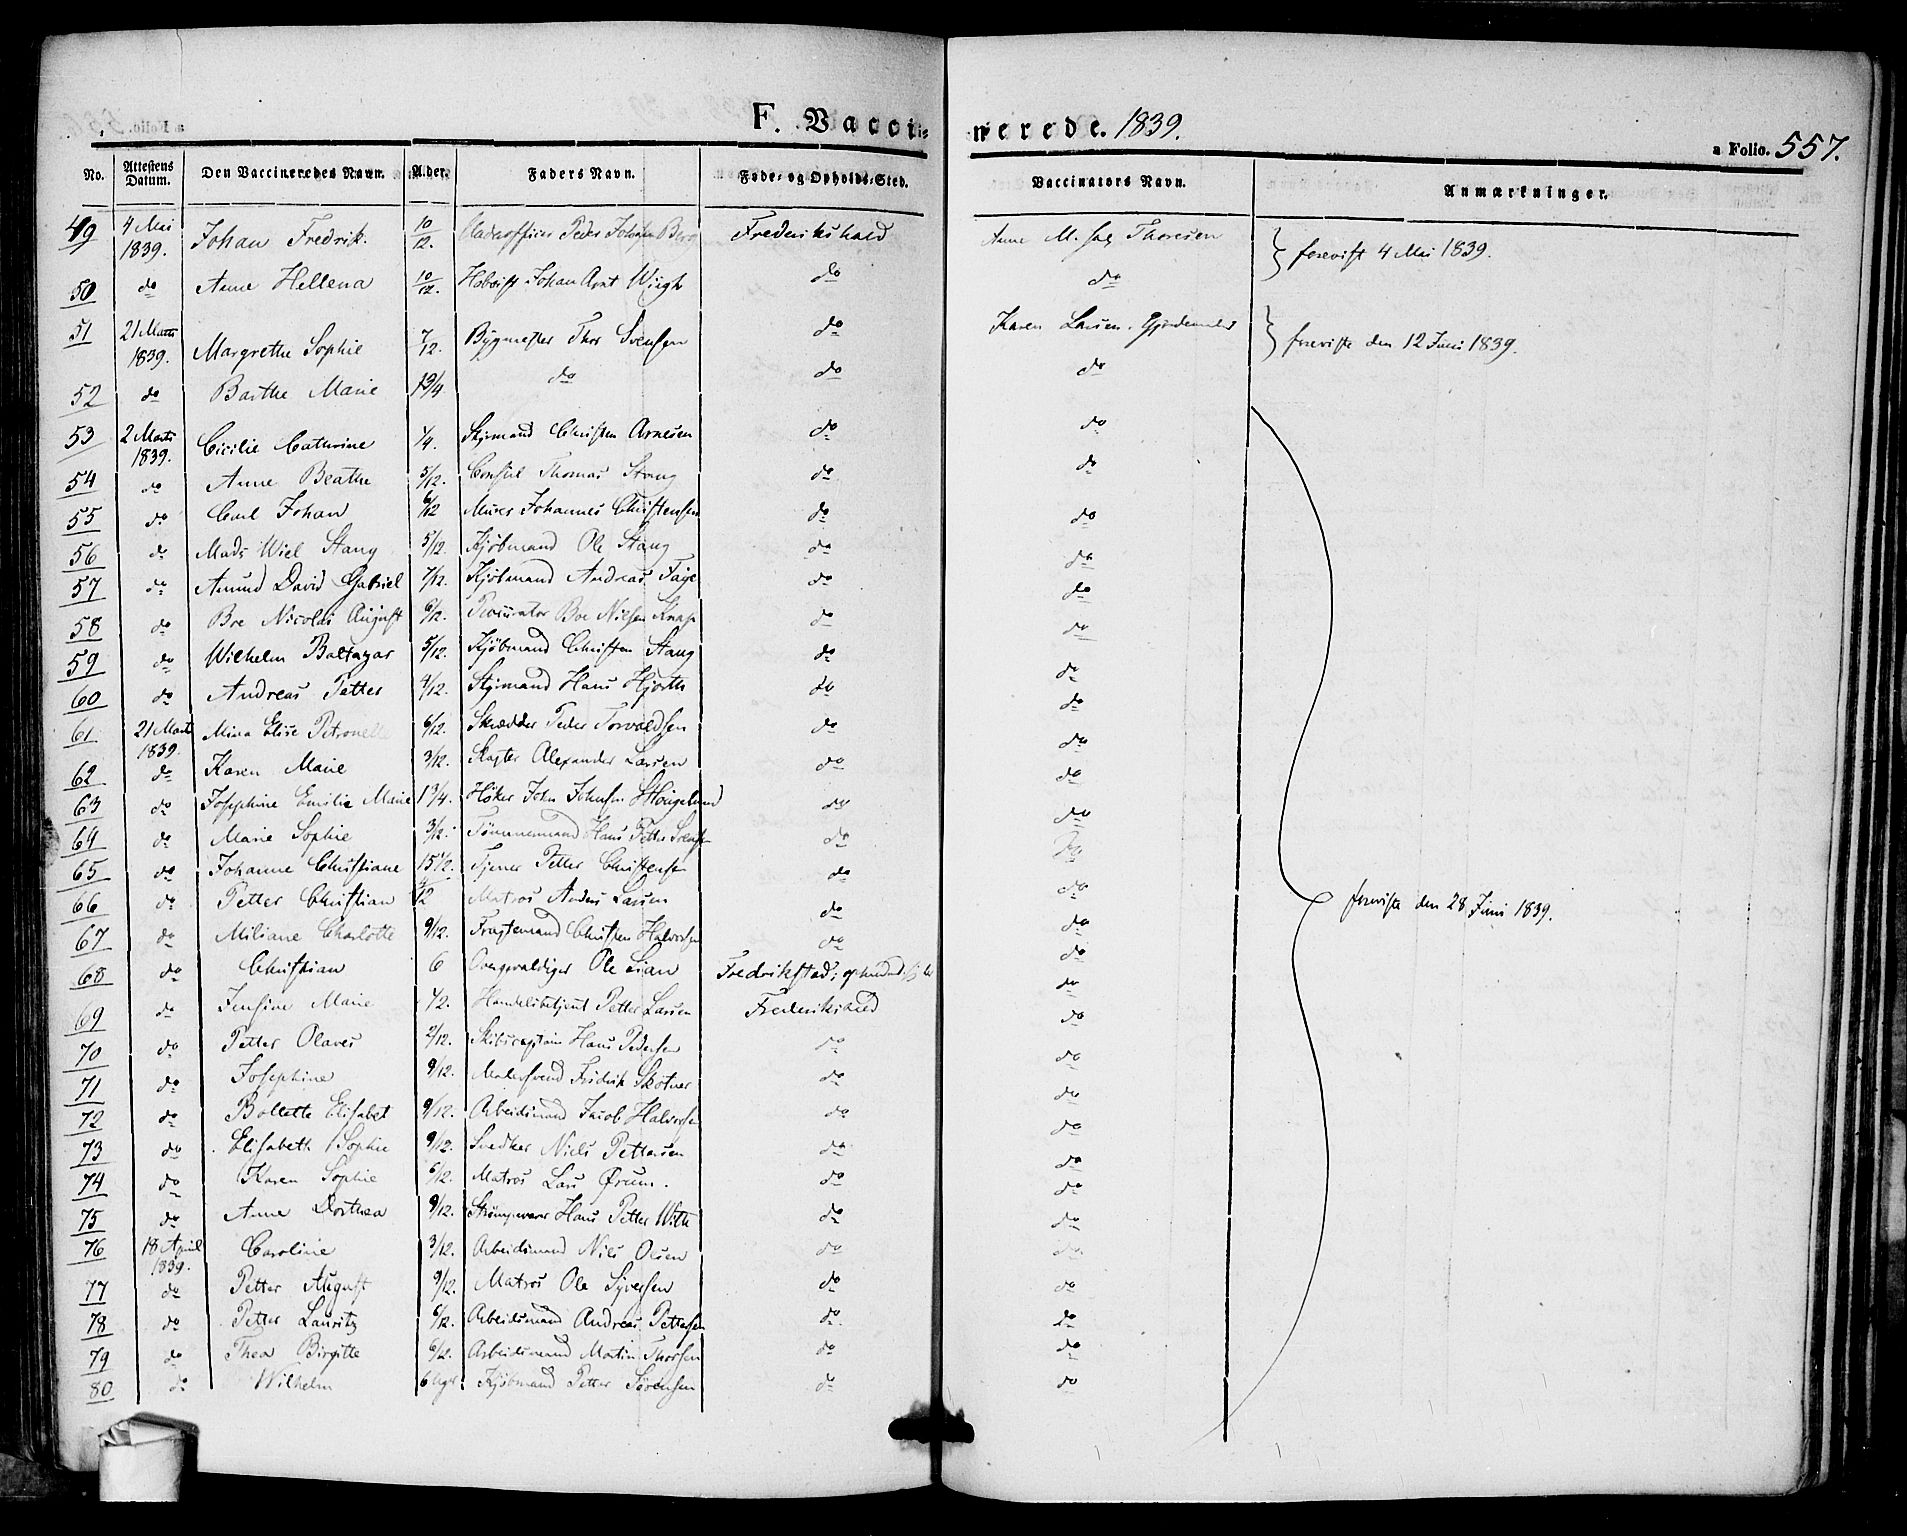 F. Vaccinerede. 1839.
a Folio. 557.
No. Attestens Datum. Den Vaccineredes Navn. Alder. Faders Navn. Føde- og Opholds-Sted. Vaccinators Navn. Anmærkninger.
49 4 Mai 1839. Johan Fredrik. 10/12. Peder Johan Frederikshald Anne M. Thoresen forevist 4 Mai 1839.
50 do Anne Hellena 10/12. Johan Arnt Wiigh do do
51 21 Marts 1839. Margrethe Sophie 7/12. Bygmester Thor Svensen do Karen Larsen, Gjordemoder foreviste den 12 Juni 1839.
52 do Barthe Marie 1 3/4 do do do
53 2 Marts 1839. Cicilie Cathrine 1/4. Styrmand Christen Arnesen do do
54 do Anne Beathe 5/12. Consul Thomas Stang do do
55 do Carl Johan 6/12 Murer Johannes Christensen do do
56 do Mads Wiel Stang 5/12. Kjøbmand Ole Stang do do
57 do Amund David Gabriel 7/12. Kjøbmand Andreas Faye do do
58 do Boe Nicolai August 6/12. Procurator Boe Nielsen Knap do do
59 do Wilhelm Baltazar 5/12. Kjøbmand Christen Stang do do
60 do Andreas Petter 4/12. Styrmand Hans Hjorth do do
61 21 Marts 1839. Mina Elise Petronelle 6/12. Skrædder Peder Torvaldsen do do
62 do Karen Marie 3/12. Slagter Alexander Larsen do do
63 do Josephine Emilie Marie 1 3/4. Høker John Johnsen do do
64 do Marie Sophie 3/12. Tømmermand Hans Petter Svensen do do
65 do Johanne Christiane Tjener Petter Christensen do do
66 do Petter Christian Matros Anders Larsen do do foreviste den 28 Juni 1839.
67 do Miliane Charlotte 9/12. Fragtemand Christen Halvorsen do do
68 do Christian 6 Ole Lian Fredrikstad; do
69 do Jensine Marie 1/2. Handelsbetjent Petter Larsen Frederikshald do
70 do Petter Olaves 2/12. Skibscaptain Hans Pedersen do do
71 do Josephine 9/12. Malersvend Fredrik Skotner do do
72 do Bollette Elisabet 9/12. Arbeidsmand Jacob Halvorsen do do
73 do Elisabeth Sophie 9/12. Snedker Niels Pettersen do do
74 do Karen Sophie 6/12. Matros Lars Ørum. do do
75 do Anne Dorthea 9/12. Strømpevæver Hans Petter With do do
76 18 April 1839. Caroline 3/12. Arbeidsmand Nils Olsen do do
77 do Petter August 9/12. Matros Ole Syversen do do
78 do Petter Lauritz 6/12. Arbeidsmand Andreas Pettersen do do
79 do Thea Birgitte 6/12. Arbeidsmand Martin Thorsen do do
80 do Wilhelm 6 Kjøbmand Petter Sørensen do do